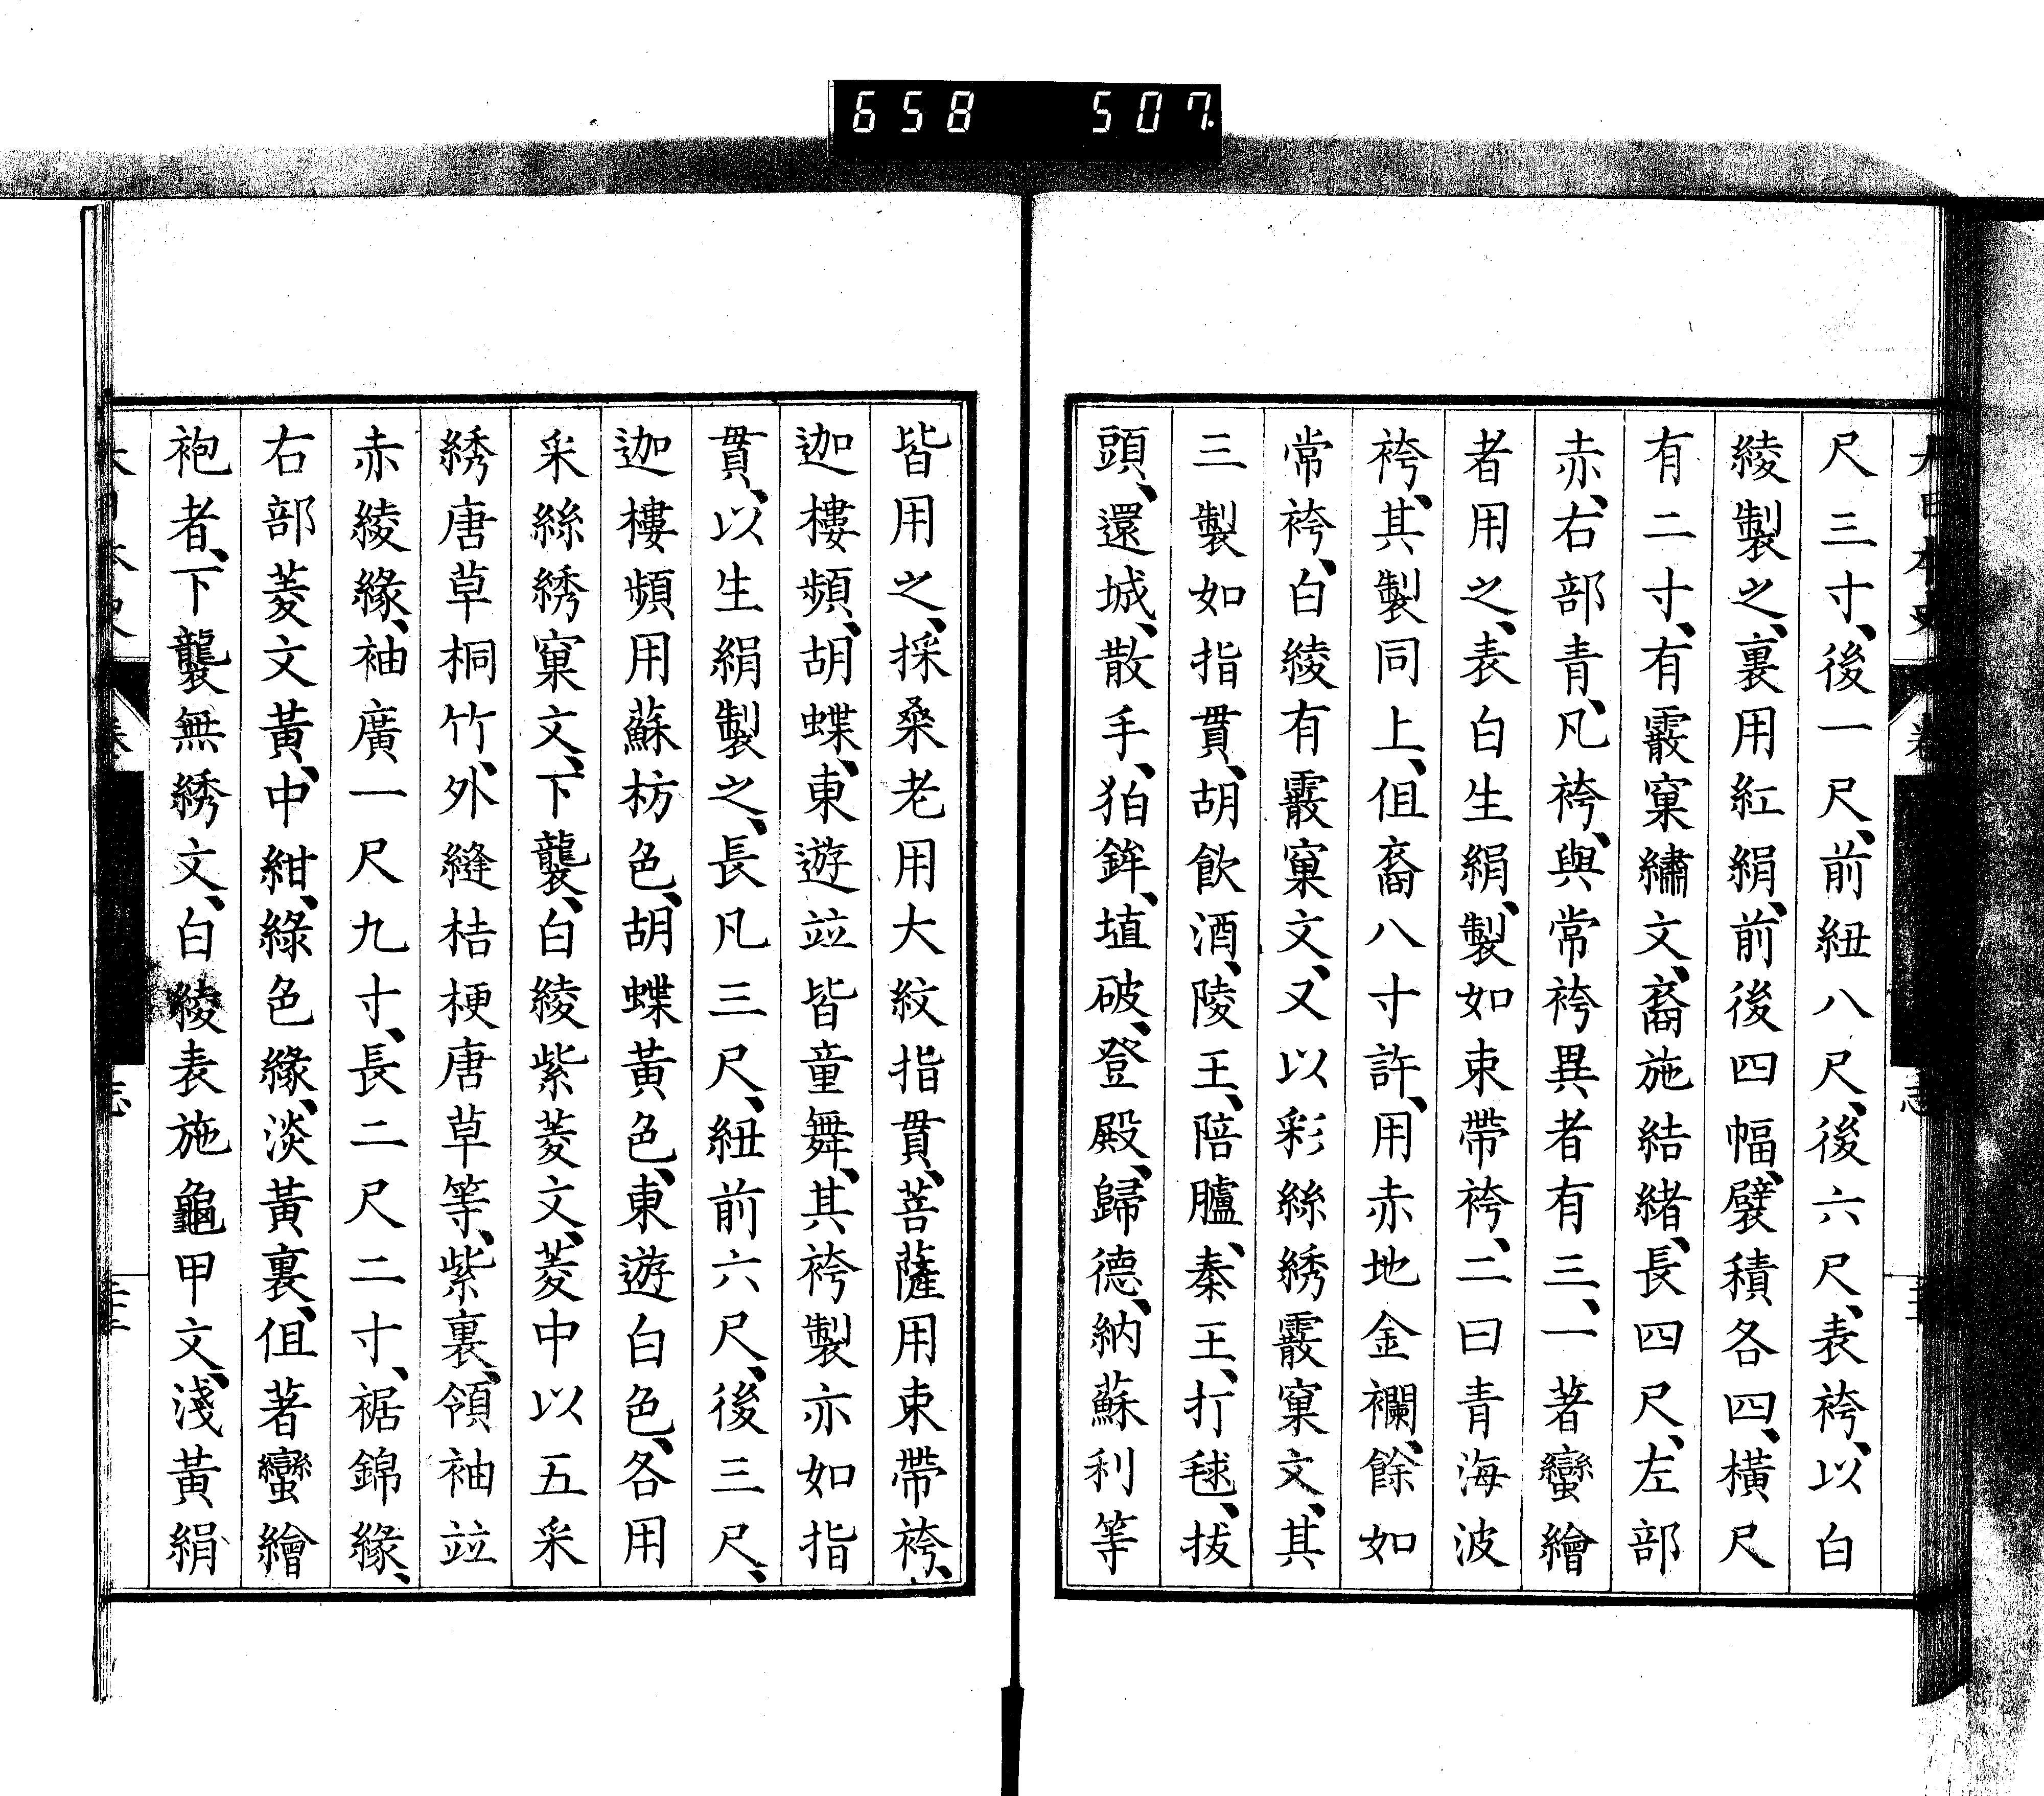 658 507
尺三寸、後一尺、前紐八尺、後六尺、表袴、以白
綾製之、裏用紅絹、前後四幅、襞積各四、橫尺
有二寸、有霰窠繡文、裔施結緒、長四尺、左部
赤、右部青、凡袴、與常袴異者有三、一著蠻繪
者用之、表白生絹、製如束帶袴、二曰青海波
袴、其製同上、但裔八寸許、用赤地金襴、餘如
常袴、白綾有霰窠文、又以彩絲綉霰窠文、其
三製如指貫、胡飲酒、陵王、陪臚、秦王、打毬、拔
頭、還城、散手、狛鉾、埴破、登殿、歸德、納蘇利等
皆用之、採桑老用大紋指貫、菩薩用束帶袴、
迦樓頻、胡蝶、東遊竝皆童舞、其袴製亦如指
貫、以生絹製之、長凡三尺、紐前六尺、後三尺、
迦樓頻用蘇枋色、胡蝶黃色、東遊白色、各用
采絲綉窠文、下襲、白綾紫菱文、菱中以五采
綉唐草桐竹、外縫桔梗唐草等、紫裏、領袖竝
赤綾緣、袖廣一尺九寸、長二尺二寸、裾錦緣、
右部菱文黃、中紺、綠色緣、淡黃裏、但著蠻繪
袍者、下襲無綉文、白綾表施龜甲文、淺黃絹